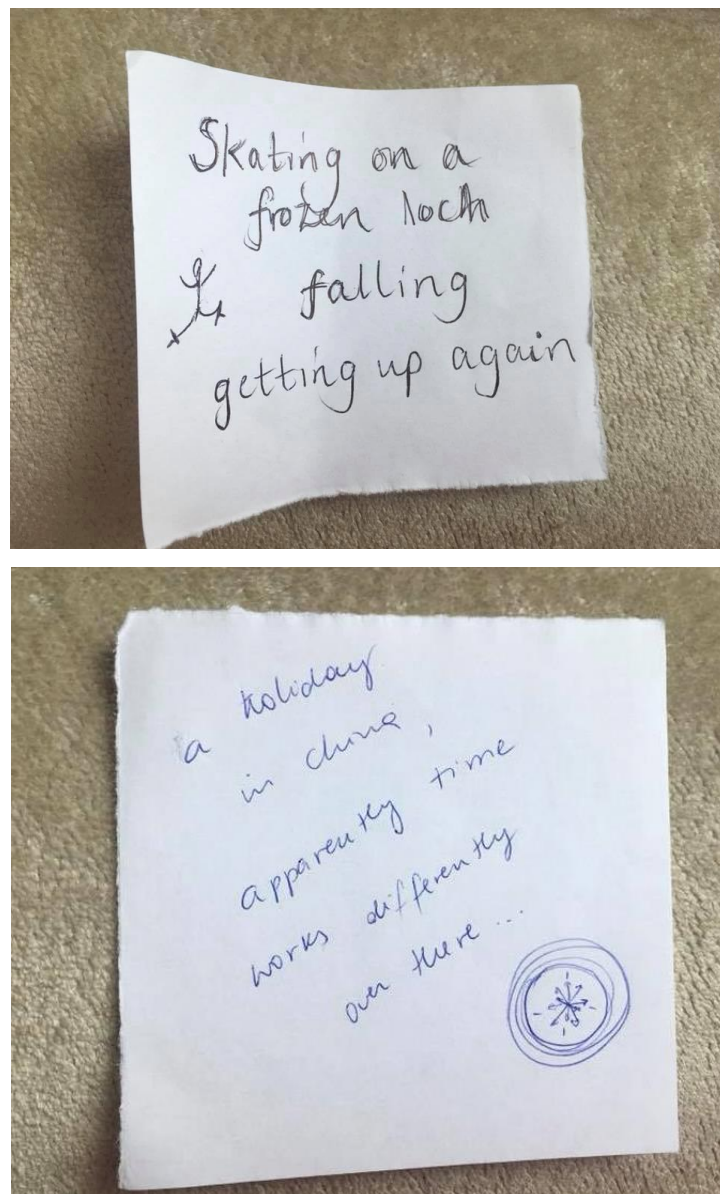 Skating on a
frozen loch
falling
getting up again
a holiday
in china,
apparently time
works differently
over there...